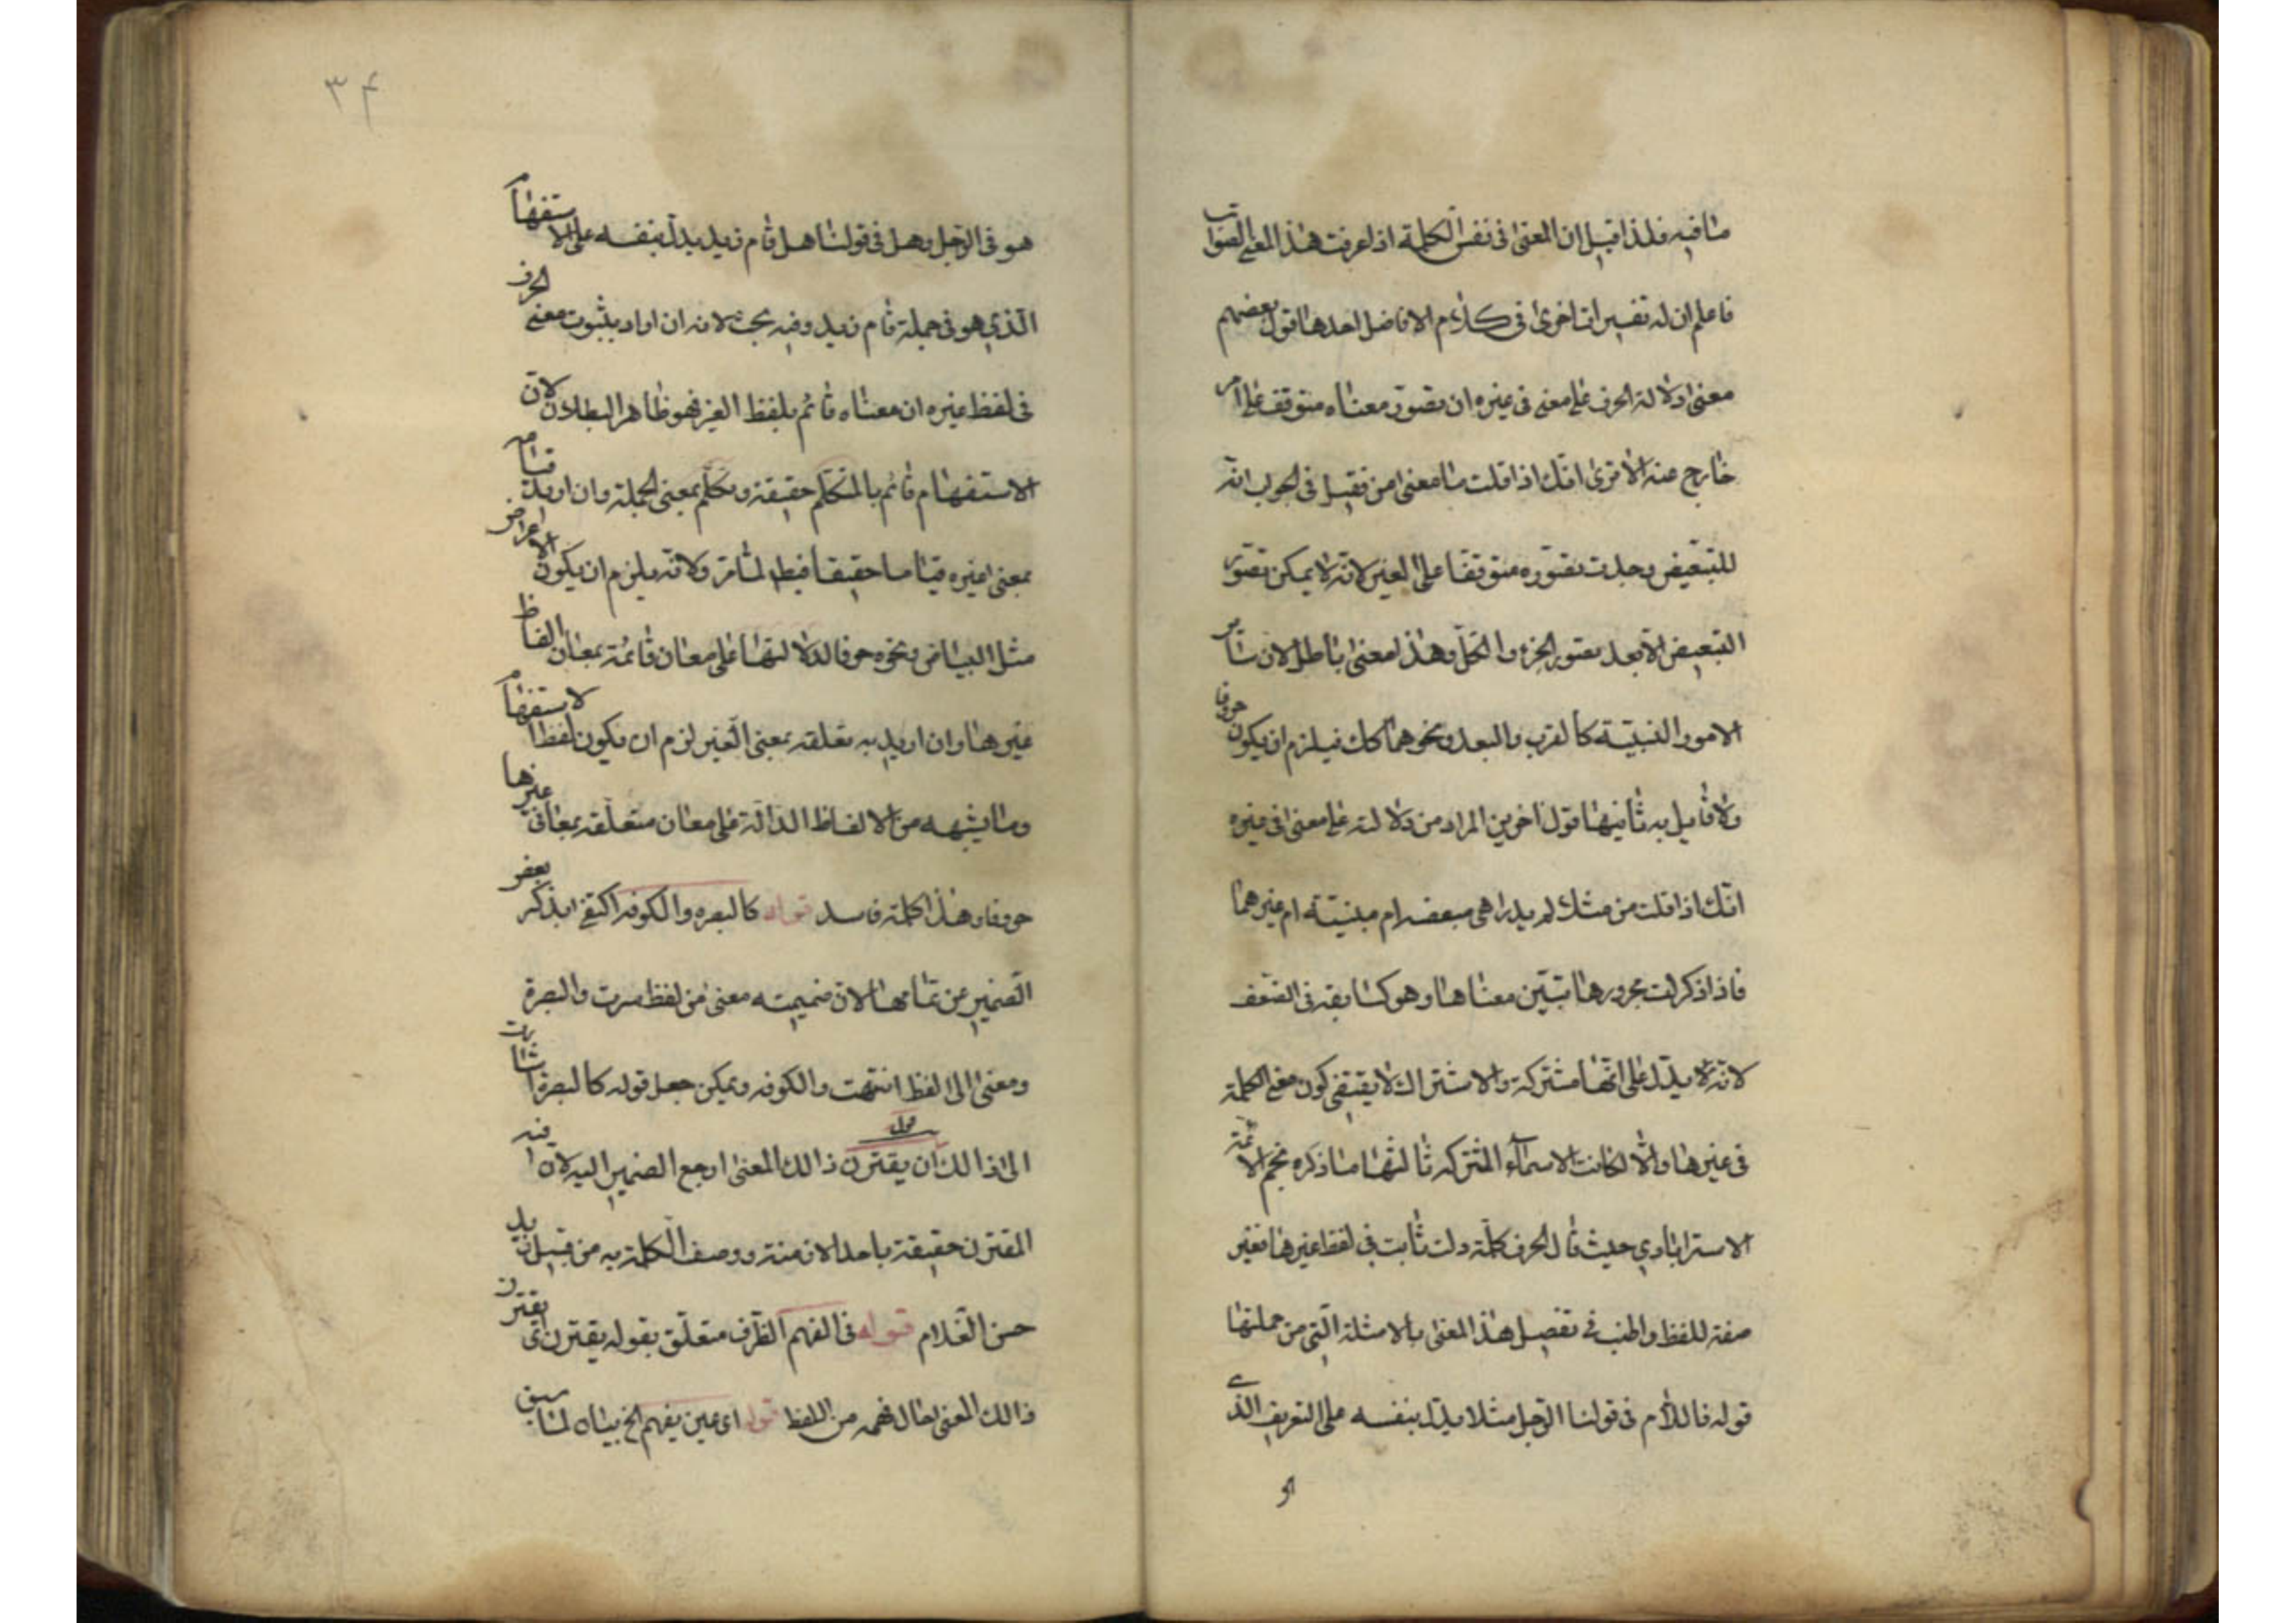 ما فيه فلذا قيل ان المعنى فى نفس الكلمة اذا عرفت هذا المعنى الصواب
فاعلم ان له تفسيرات اخرى فى كلام الافاضل احدها قول بعضهم
معنى دلالة الحرف على معنى فى غيره ان تصور معناه متوقف على امر
خارج عنه الا ترى انك اذا قلت ما معنى من فقيل فى الجواب انه
للتبعيض وجدت تصوره متوقفا على الغير لانه لا يمكن تصور
التبعيض الا بعد تصور الجزء والكل وهذا معنى باطل لان سائر
الامور النسبية كالقرب والبعد ونحوهما كك فيلزم ان يكون حروفا
ولا قايل به ثانيها قول اخرين المراد من دلالته على معنى فى غيره
انك اذا قلت من مثلا لم يدر اهى مبعضه ام مبنيته ام غيرهما
فاذا ذكرت مجرورها تبين معناها وهو كسابقه فى الضعف
لانه لا يدل على انها مشتركة والاشتراك لا يقتضى كون معنى الكلمة
فى غيرها والا لكانت الاسماء المشتركه ثالثها ما ذكره نجم الائمة
الاسترابادي حيث قال الحرف كلمة دلت ثابت فى لفظ غيرها فغير
صفة للفظ واطنب فى تفصيل هذا المعنى بالامثلة التى من جملتها
قوله فاللام فى قولنا الرجل مثلا يدل بنفسه على التعريف الذى
هو فى الرجل وهل فى قولنا هل قام زيد يدل بنفسه على الاستفهام
الذي هو فى جملة قام زيد وفيه بحث لانه ان اراد بثبوت معنى الحرف
فى لفظ غيره ان معناه قائم بلفظ الغير فهو ظاهر البطلان لان
الاستفهام قائم بالمتكلم حقيقة ومتكلم بمعنى الجملة وان اريد قيامه
بمعنى غيره قياما حقيقا فبطل لما مر ولانه يلزم ان يكون الاعراض
مثل البياض ونحوه حروفا لدلالتها على معان قائمة بمعان الفاظ
غيرها وان اريد به تعلقه بمعنى الغير لزم ان يكون لفظ الاستفهام
وما يشبهه من الالفاظ الدالة على معان متعلقه بمعان غيرها
حروفا وهذا كله فاسد قوله كالبصره والكوفه اكتفى بذكر بعض
الضمير عن تمامها لان ضميمته معنى من لفظ سرت والبصرة
ومعنى الى لفظ انتهت والكوفه ويمكن جعل قوله كالبصرة اشارت
الى ذالك قوله ان يقترن ذالك المعنى ارجع الضمير اليه لانه
المقترن حقيقة باحد الازمنة ووصف الكلمة به من قبيل زيد
حسن الغلام قوله فى الفهم الظرف متعلق بقوله يقترن اى يقترن
ذالك المعنى حال فهمه من اللفظ قوله اى حين يفهم الخ بيان لما سبق
هو
٣٤